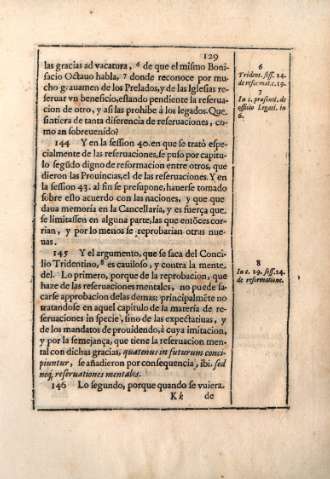 129
las gracias ad vacatura, 6 de que el mismo Boni-
facio Octauo habla, 7 donde reconoce por mu-
cho grauamen de los Prelados, y de las Iglesias re-
seruar vn beneficio, estando pendiente la reserua-
cion de otro, y assi las prohibe à los legados. Que
sintiera de tanta diferencia de reseruaciones, co-
mo an sobreuenido?
144 Y en la session 40. en que se trató espe-
cialmente de las reseruaciones, se puso por capitu-
lo segũdo digno de reformacion entre otros, que
dieron las Prouincias, el de las reseruaciones. Y en
la session 43. al fin se presupone, hauerse tomado
sobre esto acuerdo con las naciones, y que que
daua memoria en la Cancellaria, y es fuerça que
se limitassen en alguna parte, las que entõces cor-
rian, y por lo menos se reprobarian otras nue-
uas.
145 Y el argumento, que se saca del Conci-
lio Tridentino, 8 es cauiloso, y contra la mente
del. Lo primero, porque de la reprobacion, que
haze de las reseruaciones mentales, no puede sa-
carse approbacion de las demas: principalmẽte no
tratandose en aquel capitulo de la materia de re-
seruaciones in specie, sino de las expectatiuas, y
de los mandatos de prouidendo, à cuya imitacion,
y por la semejança, que tiene la reseruacion men-
tal con dichas gracias, quatenus in futurum conci-
piuntur, se añadieron por consequencia, ibi. sed
neq, reseruationes mentales.
146 Lo segundo, porque quando se vuiera
Kk de
6
Trident. sess. 24.
de reformat. c. 19.
7
In c. præsenti. de
officio Legati. in
6.
8
In c. 19. sess. 24.
de reformatione.